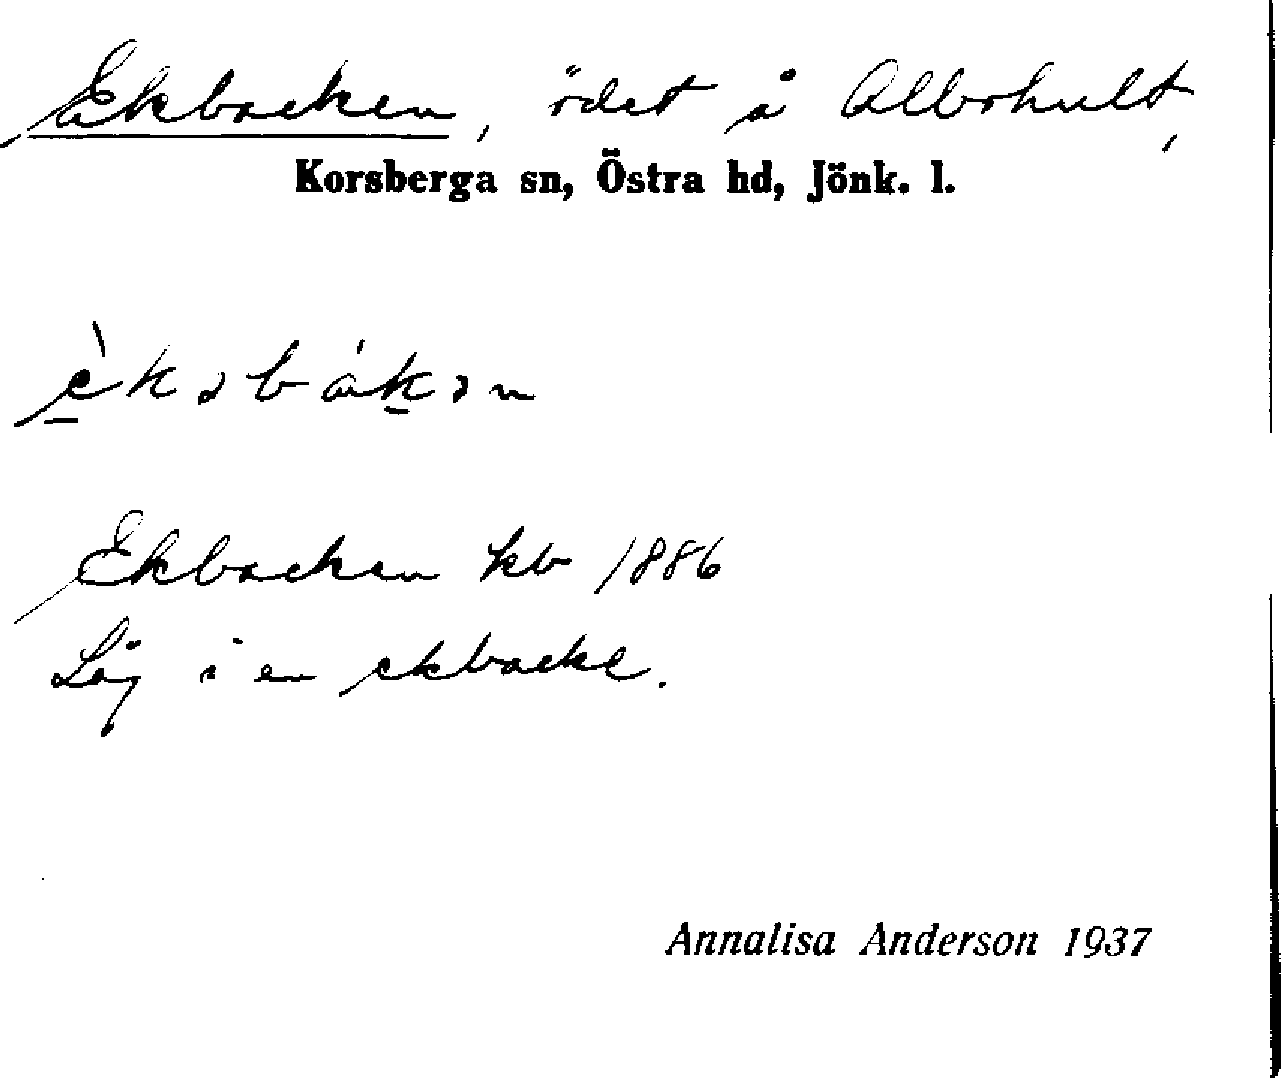 Ekbacken, ödet å Albohult,
Korsberga sn, Östra hd, Jönk. l.
Ekbacken kb 1886
Låg i en ekbacke.
Annalisa Anderson 1937